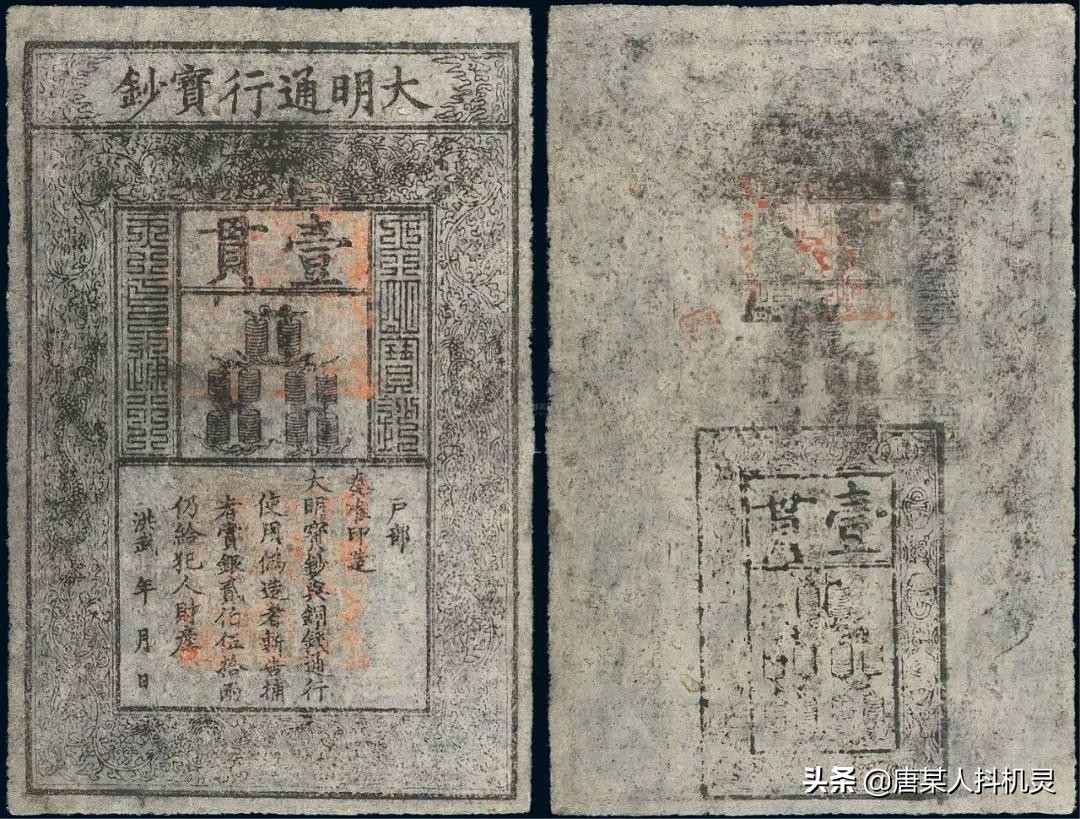 大明通行寳鈔
壹貫
戶部
奏准印造
大明寳鈔與銅錢通行
使用偽造者斬告捕
者賞銀貳伯伍拾兩
仍給犯人財產
洪武 年 月 日
壹貫
头条 @唐某人抖机灵